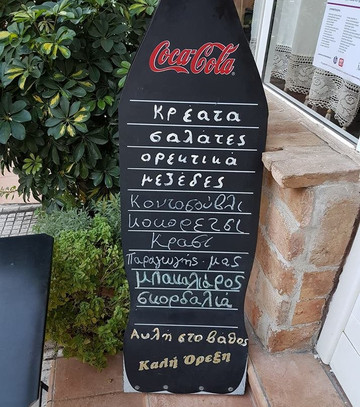 Coca-Cola
Κρέατα
σαλάτες
ορεκτικά
μεζέδες
Κοντοσούβλι
κοκορέτσι
Κρασί
Παραγωγής μας
μπακαλιάρος
σκορδαλιά
Αυλή στο βάθος
Καλή Όρεξη